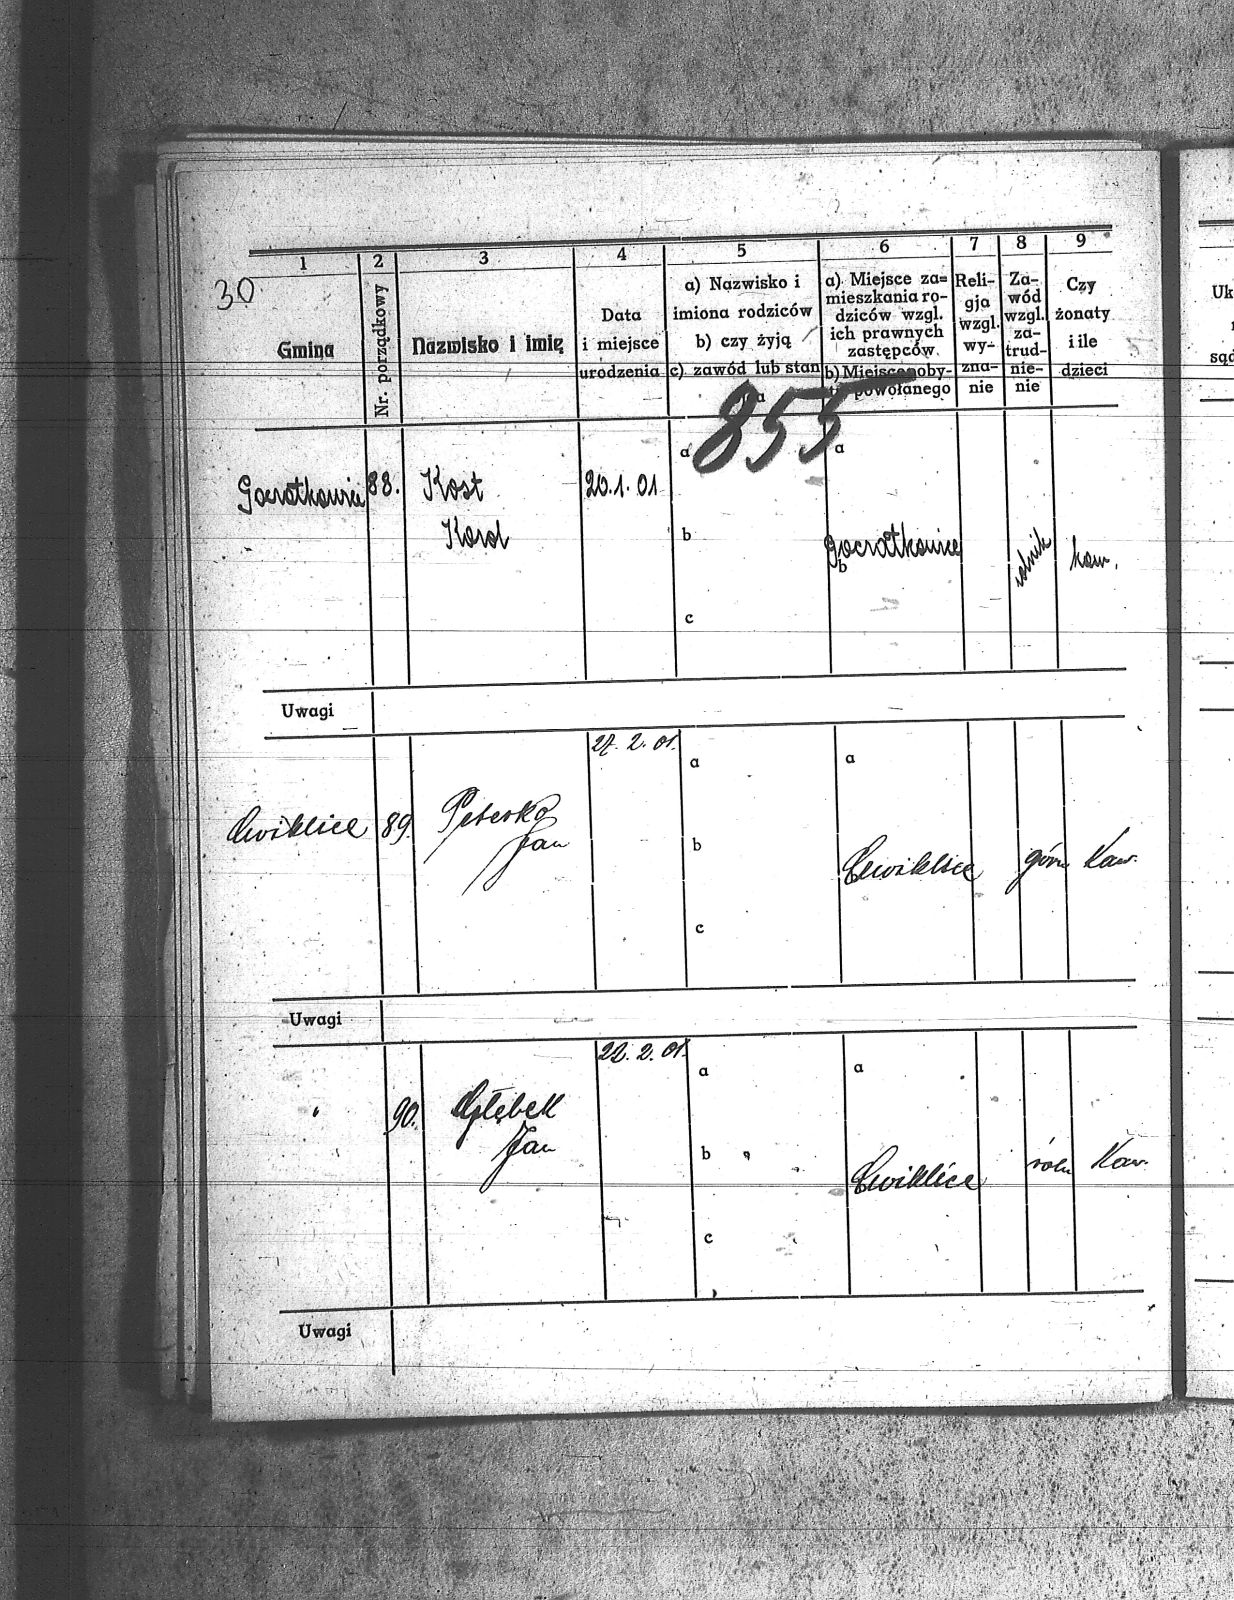 30
1 2 3 4 5 6 7 8 9
Gmina
Nr. porządkowy
Nazwisko i imię
Data
i miejsce
urodzenia
a) Nazwisko i
imiona rodziców
b) czy żyją
c) zawód lub stan
a) Miejsce za=
mieszkania ro-
dziców wzgl.
ich prawnych
zastępców
b) Miejsce poby-
powołanego
Reli-
gja
wzgl.
wy-
zna-
nie
Za-
wód
wzgl.
za-
trud-
nie-
nie
Czy
żonaty
i ile
dzieci
855
Goczałkowice 88. Kost 20.1.01 a a
Karol b Goczałkowice rolnik kaw.
b
c
Uwagi
27. 2. 01.
a a
Cwiklice 89. Peterko
Jan b Cwiklice górn Kaw.
c
Uwagi
22. 2. 01.
a a
" 90. Głębek
Jan b Cwiklice roln Kaw.
c
Uwagi
Uk
sąd